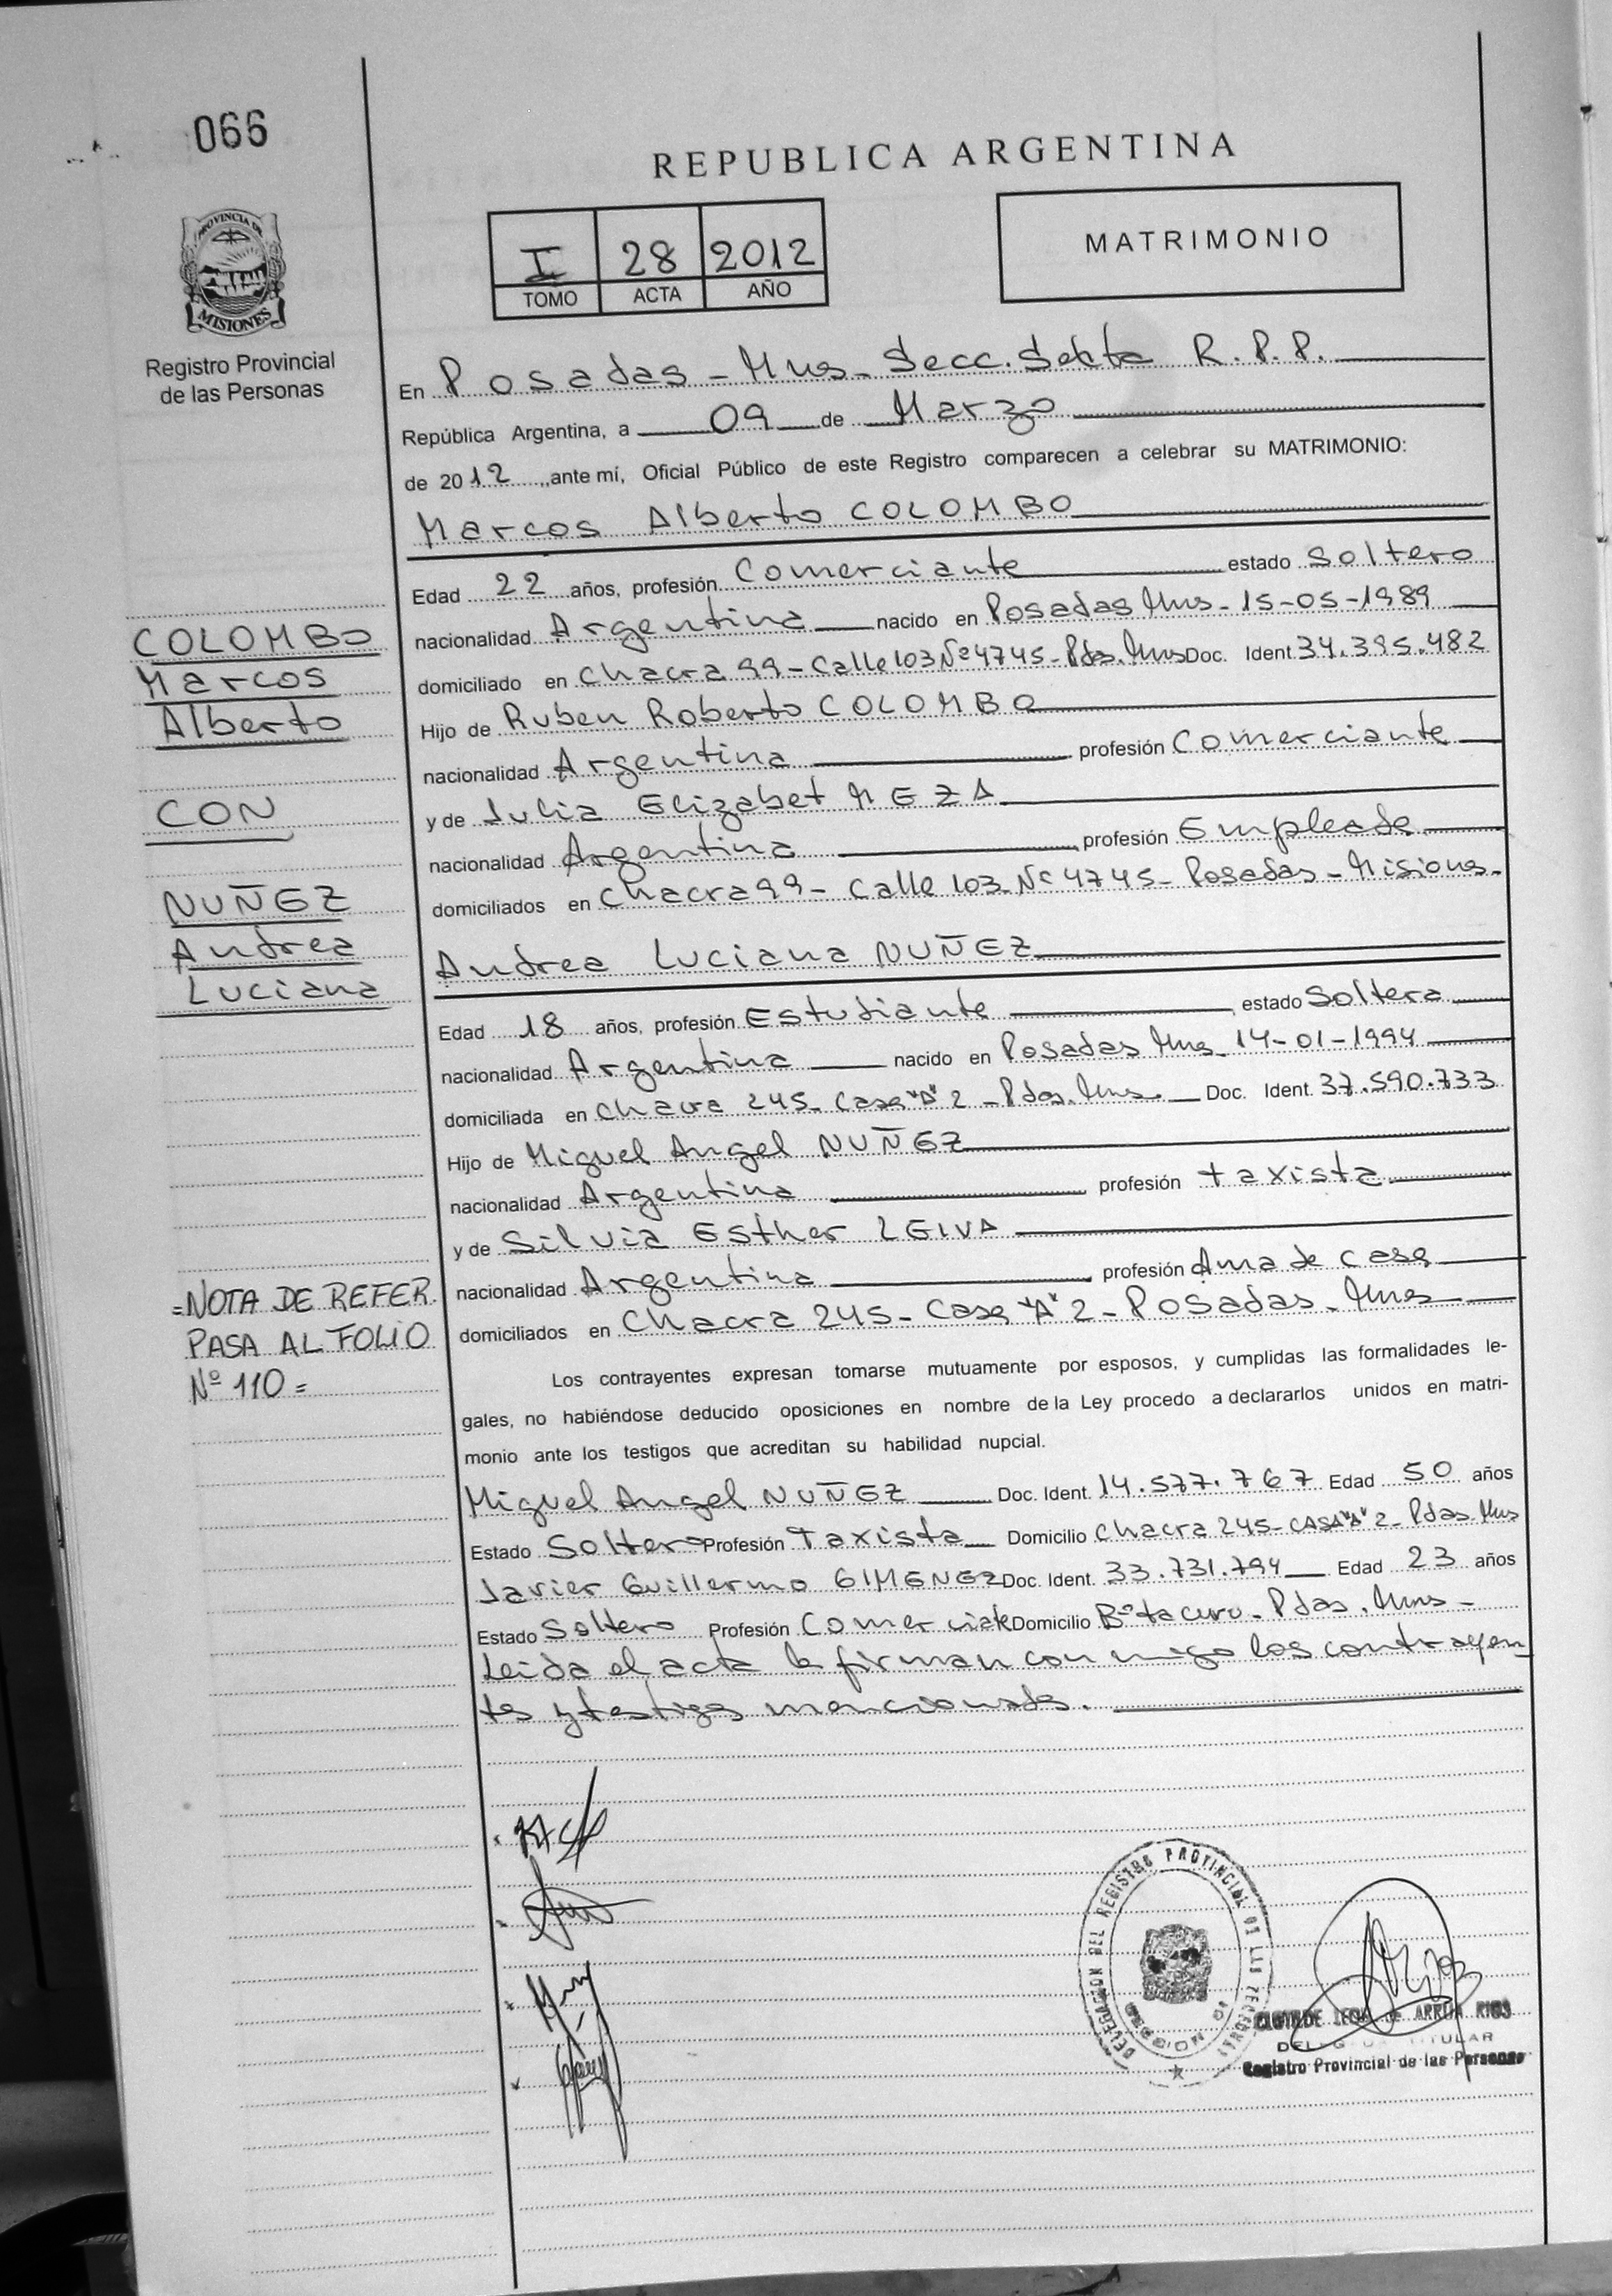 066
REPUBLICA ARGENTINA
PROVINCIA DE
MISIONES
Registro Provincial
de las Personas
I 28 2012
TOMO ACTA AÑO
MATRIMONIO
En Posadas - Mnes - Secc. Sexta R.P.P.
República Argentina, a 09 de Marzo
de 2012, ante mí, Oficial Público de este Registro comparecen a celebrar su MATRIMONIO:
Marcos Alberto COLOMBO
Edad 22 años, profesión Comerciante estado Soltero
nacionalidad Argentina nacido en Posadas Mnes - 15-05-1989
domiciliado en Chacra 99 - Calle 103 Nº 4745 - Pdas. Mnes Doc. Ident. 34.395.482
Hijo de Ruben Roberto COLOMBO
nacionalidad Argentina profesión Comerciante
y de Julia Elizabet MEZA
nacionalidad Argentina, profesión Empleada
domiciliados en Chacra 99 - Calle 103 - Nº 4745 - Posadas - Misiones.
Andrea Luciana NUÑEZ
Edad 18 años, profesión Estudiante, estado Soltera
nacionalidad Argentina nacido en Posadas Mnes - 14-01-1994
domiciliada en Chacra 245 - Casa "A" 2 - Pdas. Mnes. Doc. Ident. 37.590.733
Hijo de Miguel Angel NUÑEZ
nacionalidad Argentina profesión taxista
y de Silvia Esther LEIVA
nacionalidad Argentina, profesión Ama de casa
domiciliados en Chacra 245 - Casa "A" 2 - Posadas - Mnes
COLOMBO
Marcos
Alberto
CON
NUÑEZ
Andrea
Luciana
=NOTA DE REFER.
PASA AL FOLIO
Nº 110=
Los contrayentes expresan tomarse mutuamente por esposos, y cumplidas las formalidades le-
gales, no habiéndose deducido oposiciones en nombre de la Ley procedo a declararlos unidos en matri-
monio ante los testigos que acreditan su habilidad nupcial.
Miguel Angel NUÑEZ Doc. Ident. 14.577.767 Edad 50 años
Estado Soltero Profesión Taxista Domicilio Chacra 245 - CASA "A" 2 - Pdas. Mns
Javier Guillermo GIMENEZ Doc. Ident. 33.731.794 Edad 23 años
Estado Soltero Profesión Comerciate Domicilio Bº tacuru - Pdas. Mnes -
Leida el acta la firman con migo los contrayen
tes y testigos mencionados.
DELEGACION DEL REGISTRO PROVINCIAL DE LAS PERSONAS
DE ARRUA RIOS
TITULAR
Registro Provincial de las Personas